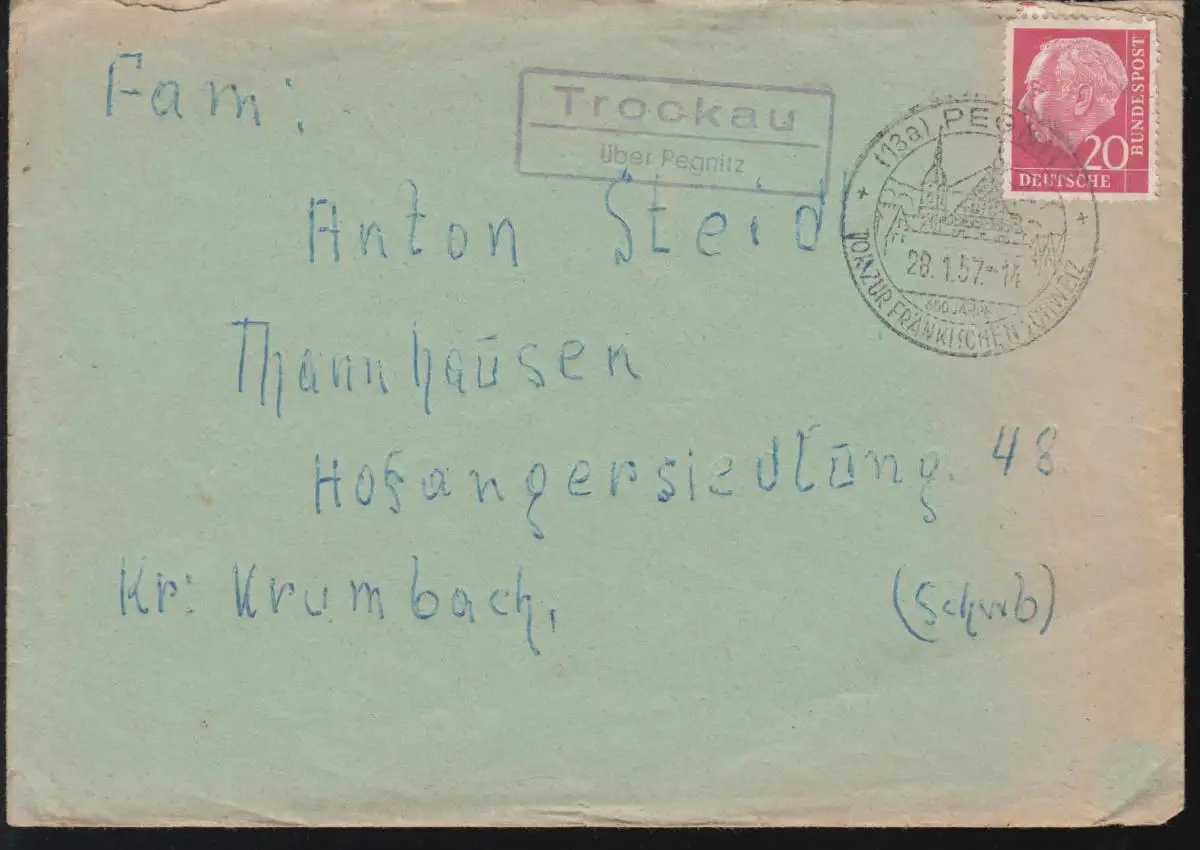 Fam:
Trockau
über Pegnitz
Anton Steidl
Thannhausen
Hofangersiedlung. 48
Kr: Krumbach,
(Schwb)
20
DEUTSCHE
BUNDESPOST
(13a) PEGNITZ
28.1.57.-14
600 JAHRE
TOR ZUR FRÄNKISCHEN SCHWEIZ